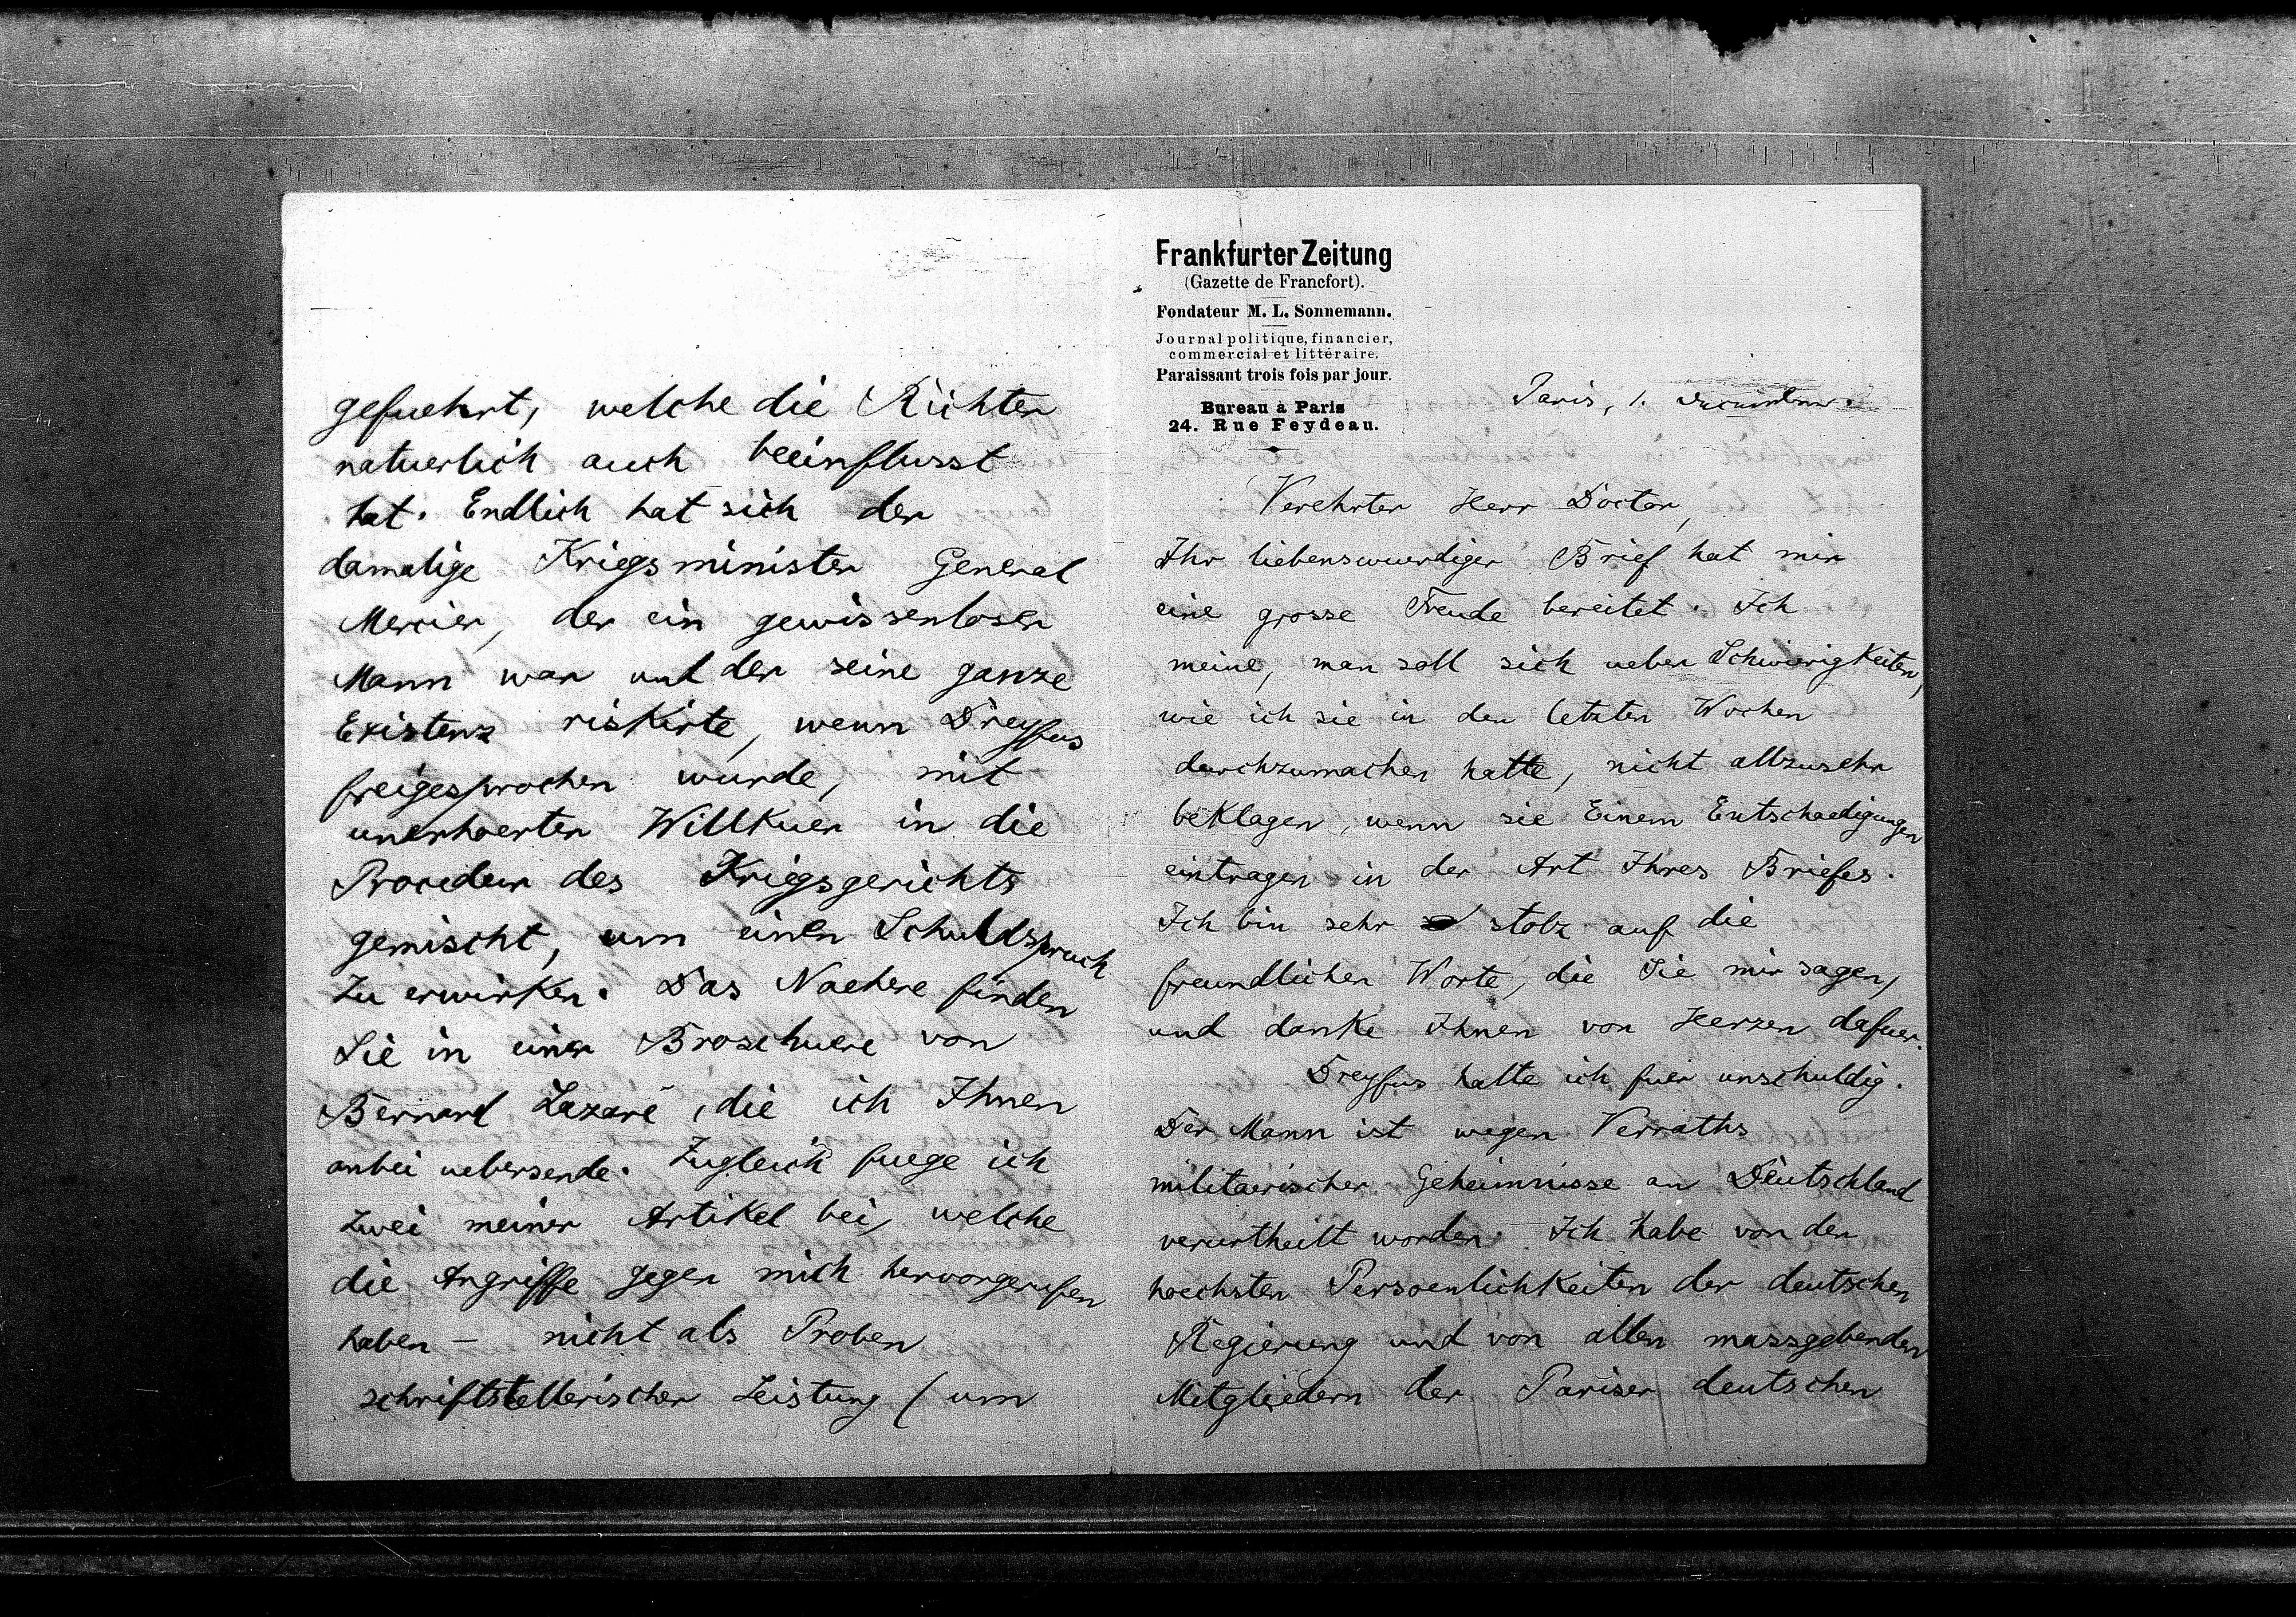 gefuehrt, welche die Richter
natuerlich auch beeinflusst
hat. Endlich hat sich der
damalige Kriegsminister General
Mercier, der ein gewissenloser
Mann war und der seine ganze
Existenz riskirte, wenn Dreyfus
freigesprochen wurde, mit
unerhoerter Willkuer in die
Procedur des Kriegsgerichts
gemischt, um einen Schuldspruch
zu erwirken. Das Naehere finden
Sie in einer Broschuere von
Bernard Lazare, die ich Ihnen
anbei uebersende. Zugleich fuege ich
zwei meiner Artikel bei, welche
die Angriffe gegen mich hervorgerufen
haben – nicht als Proben
schriftstellerischer Leistung (um
Frankfurter Zeitung
(Gazette de Francfort).
Fondateur M. L. Sonnemann.
Journal politique, financier,
commercial et littéraire.
Paraissant trois fois par jour.
Bureau à Paris
24. Rue Feydeau.
Paris, 1. December.
Verehrter Herr Doctor,
Ihr liebenswuerdiger Brief hat mir
eine grosse Freude bereitet. Ich
meine, man soll sich ueber Schwierigkeiten,
wie ich sie in den letzten Wochen
durchzumachen hatte, nicht allzusehr
beklagen, wenn sie Einem Entschaedigungen
eintragen in der Art Ihres Briefes.
Ich bin sehr stolz auf die
freundlichen Worte, die Sie mir sagen,
und danke Ihnen von Herzen dafuer.
Dreyfus halte ich fuer unschuldig.
Der Mann ist wegen Verraths
militaerischer Geheimnisse an Deutschland
verurtheilt worden. Ich habe von den
hoechsten Persoenlichkeiten der deutschen
Regierung und von allen massgebenden
Mitgliedern der Pariser deutschen